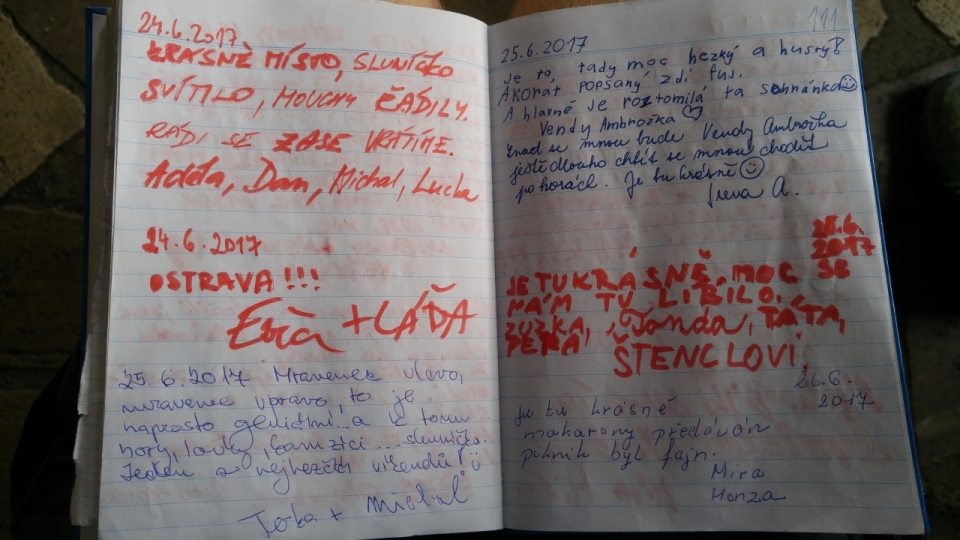 24.6.2017
KRÁSNÉ MÍSTO, SLUNÍČKO
SVÍTILO, MOUCHY ŘÁDILY.
RÁDI SE ZASE VRÁTÍME.
Adéla, Dan, Michal, Lucka
24.6.2017
OSTRAVA !!!
Evča + LÁĎA
25.6.2017 Mravenec vlevo,
mravenec vpravo, to je
naprosto geniální... a k tomu
hory, louky, kamzíci... sluníčko.
Jeden z nejhezčích víkendů!
+ Michal
111
25.6.2017
Je to, tady moc hezký a hustý!
Akorát popsaný zdi fuj.
A hlavně je roztomilá ta schránka☺
Vendy Ambrožka ♡
Snad se mnou bude Vendy Ambrožka
ještě dlouho chtít se mnou chodit
po horách. Je tu krásně ☺
Irena A.
25.6.
2017
JE TU KRÁSNĚ, MOC SE
NÁM TU LÍBILO.
ZUZKA, Vanda, TÁTA,
ŠTENCLOVI
26.6.
2017
je tu krásně
makarony předávám
piknik byl fajn.
Mira
Honza